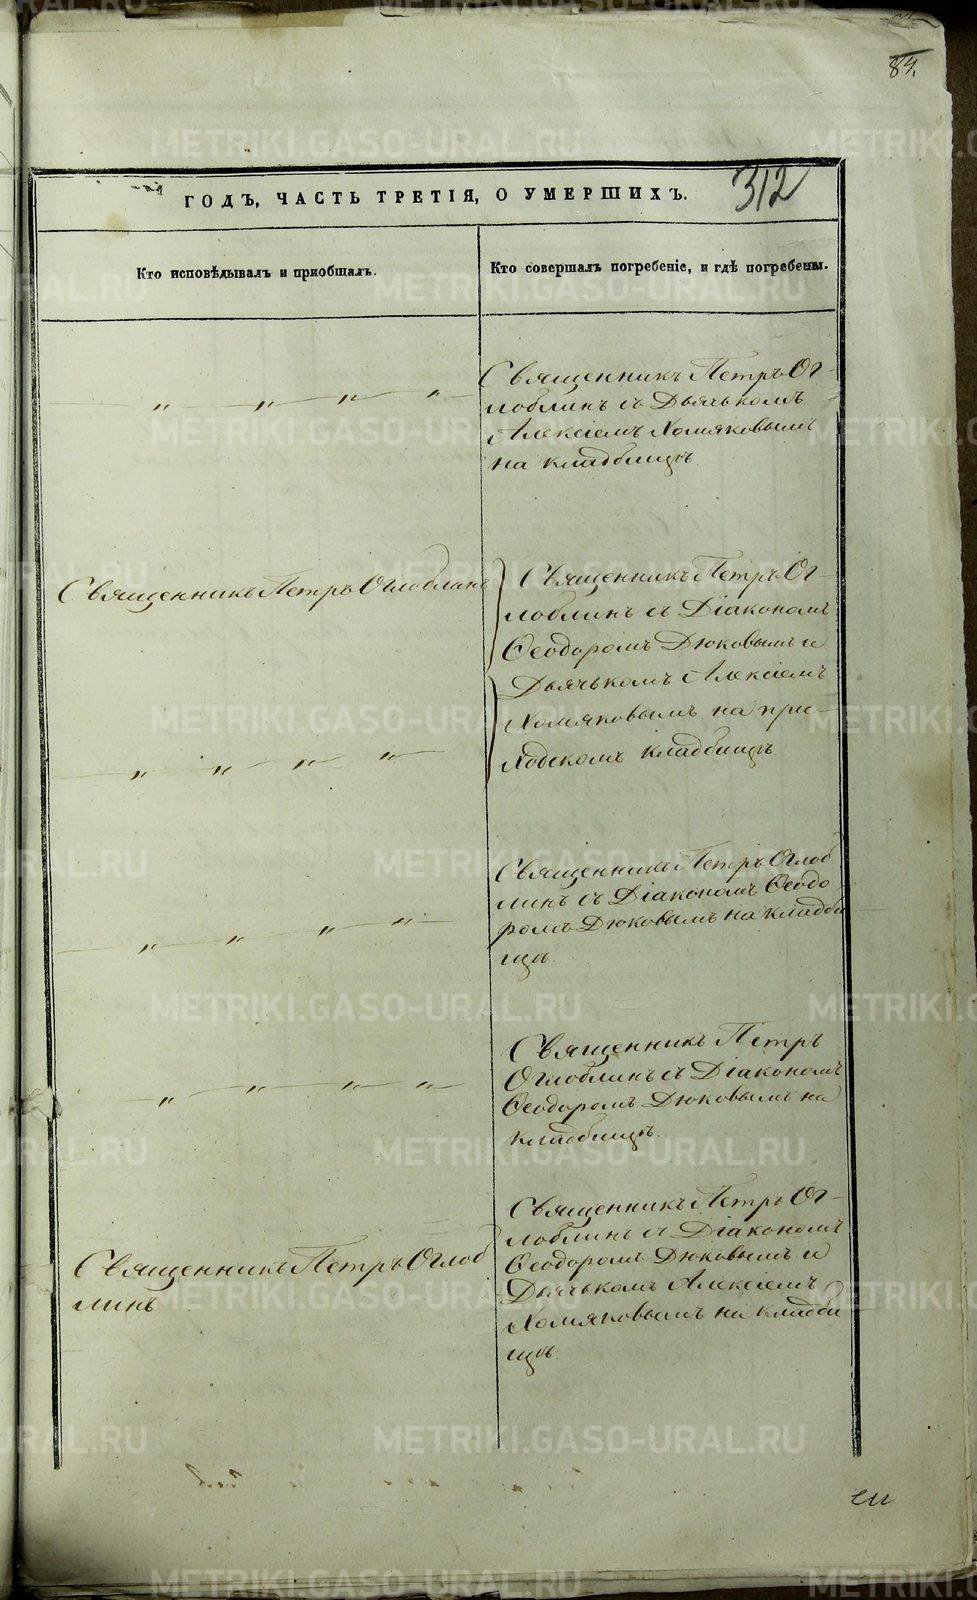 84.
312
ГОДЪ, ЧАСТЬ ТРЕТІЯ, О УМЕРШИХЪ.
Кто исповѣдывалъ и приобщалъ.
Кто совершалъ погребеніе, и гдѣ погребены.
Священникъ Петръ Ог-
лоблинъ съ Дьячькомъ
Алексіемъ Хомяковымъ
на кладбищѣ
Священникъ Петръ Оглоблинъ
Священникъ Петръ Ог-
лоблинъ съ Діакономъ
Ѳеодоромъ Дюковымъ и
Дьячькомъ Алексіемъ
Хомяковымъ на при-
ходскомъ кладбищѣ
Священникъ Петръ Оглоб
линъ съ Діакономъ Ѳеодо
ромъ Дюковымъ на кладби
щѣ.
Священникъ Петръ
Оглоблинъ съ Діакономъ
Ѳеодоромъ Дюковымъ на
кладбищѣ.
Священникъ Петръ Оглоб
линъ
Священникъ Петръ Ог-
лоблинъ съ Діакономъ
Ѳеодоромъ Дюковымъ и
Дьячькомъ Алексіемъ
Хомяковымъ на кладби
щѣ.
METRIKI.GASO-URAL.RU